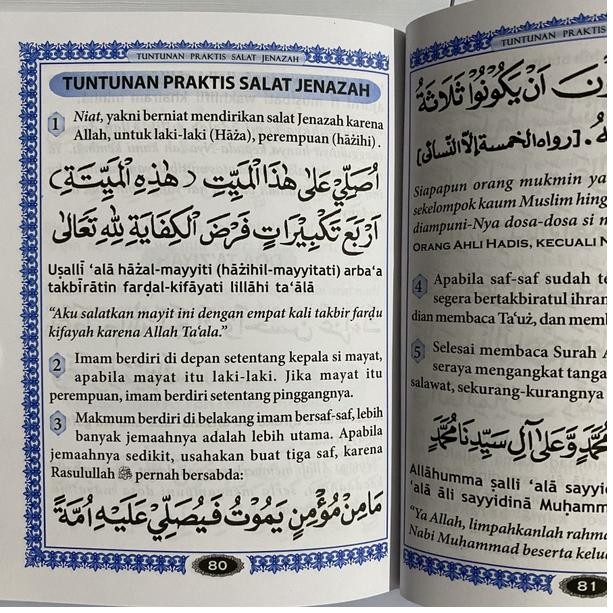 TUNTUNAN PRAKTIS SALAT JENAZAH
TUNTUNAN PRAKTIS SALAT JENAZAH
1 Niat, yakni berniat mendirikan salat Jenazah karena
Allah, untuk laki-laki (Hāża), perempuan (hāżihi).
اُصَلِّيْ عَلٰى هٰذَا الْمَيِّتِ (هٰذِهِ الْمَيِّتَةِ)
اَرْبَعَ تَكْبِيْرَاتٍ فَرْضَ الْكِفَايَةِ لِلّٰهِ تَعَالٰى
Uṣallī ‘alā hāżal-mayyiti (hāżihil-mayyitati) arba‘a
takbīrātin farḍal-kifāyati lillāhi ta‘ālā
“Aku salatkan mayit ini dengan empat kali takbir farḍu
kifayah karena Allah Ta‘ala.”
2 Imam berdiri di depan setentang kepala si mayat,
apabila mayat itu laki-laki. Jika mayat itu
perempuan, imam berdiri setentang pinggangnya.
3 Makmum berdiri di belakang imam bersaf-saf, lebih
banyak jemaahnya adalah lebih utama. Apabila
jemaahnya sedikit, usahakan buat tiga saf, karena
Rasulullah ﷺ pernah bersabda:
مَا مِنْ مُؤْمِنٍ يَمُوْتُ فَيُصَلِّيْ عَلَيْهِ اُمَّةٌ
80
TUNTUNAN PRAKTIS
اَنْ يَكُوْنُوْا ثَلَاثَةَ
[رواه الخمسة إلا النسائى]
Siapapun orang mukmin
sekelompok kaum Muslim
diampuni-Nya dosa-dosa
ORANG AHLI HADIS, KECUALI
4 Apabila saf-saf sudah
segera bertakbiratul
dian membaca Ta‘uż, dan
5 Selesai membaca Surah
seraya mengangkat
salawat, sekurang-kurangnya
وَعَلٰى اٰلِ سَيِّدِنَا مُحَمَّدٍ
Allāhumma ṣalli ‘alā
‘alā āli sayyidinā
“Ya Allah, limpahkanlah
Nabi Muhammad beserta
81